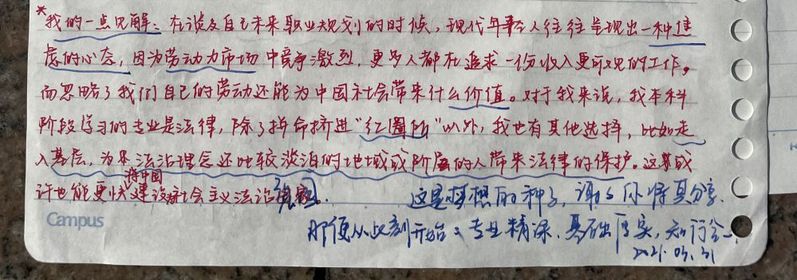 *我的一点见解：在谈及自己未来职业规划的时候，现代年轻人往往呈现出一种焦
虑的心态，因为劳动力市场中竞争激烈，更多人都在追求一份收入更可观的工作，
而忽略了我们自己的劳动还能为中国社会带来什么价值。对于我来说，我本科
阶段学习的专业是法律，除了拼命挤进"红圈所"以外，我也有其他选择，比如走
入基层，为那些法治理念还比较淡泊的地域或阶层的人带来法律的保护。这某或
许也能更快将中国建设社会主义法治强国.
这是梦想的种子，谢谢你将其分享.
Campus
那便从此刻开始：专业精深、基础厚实、知行合一.
2021.03.31